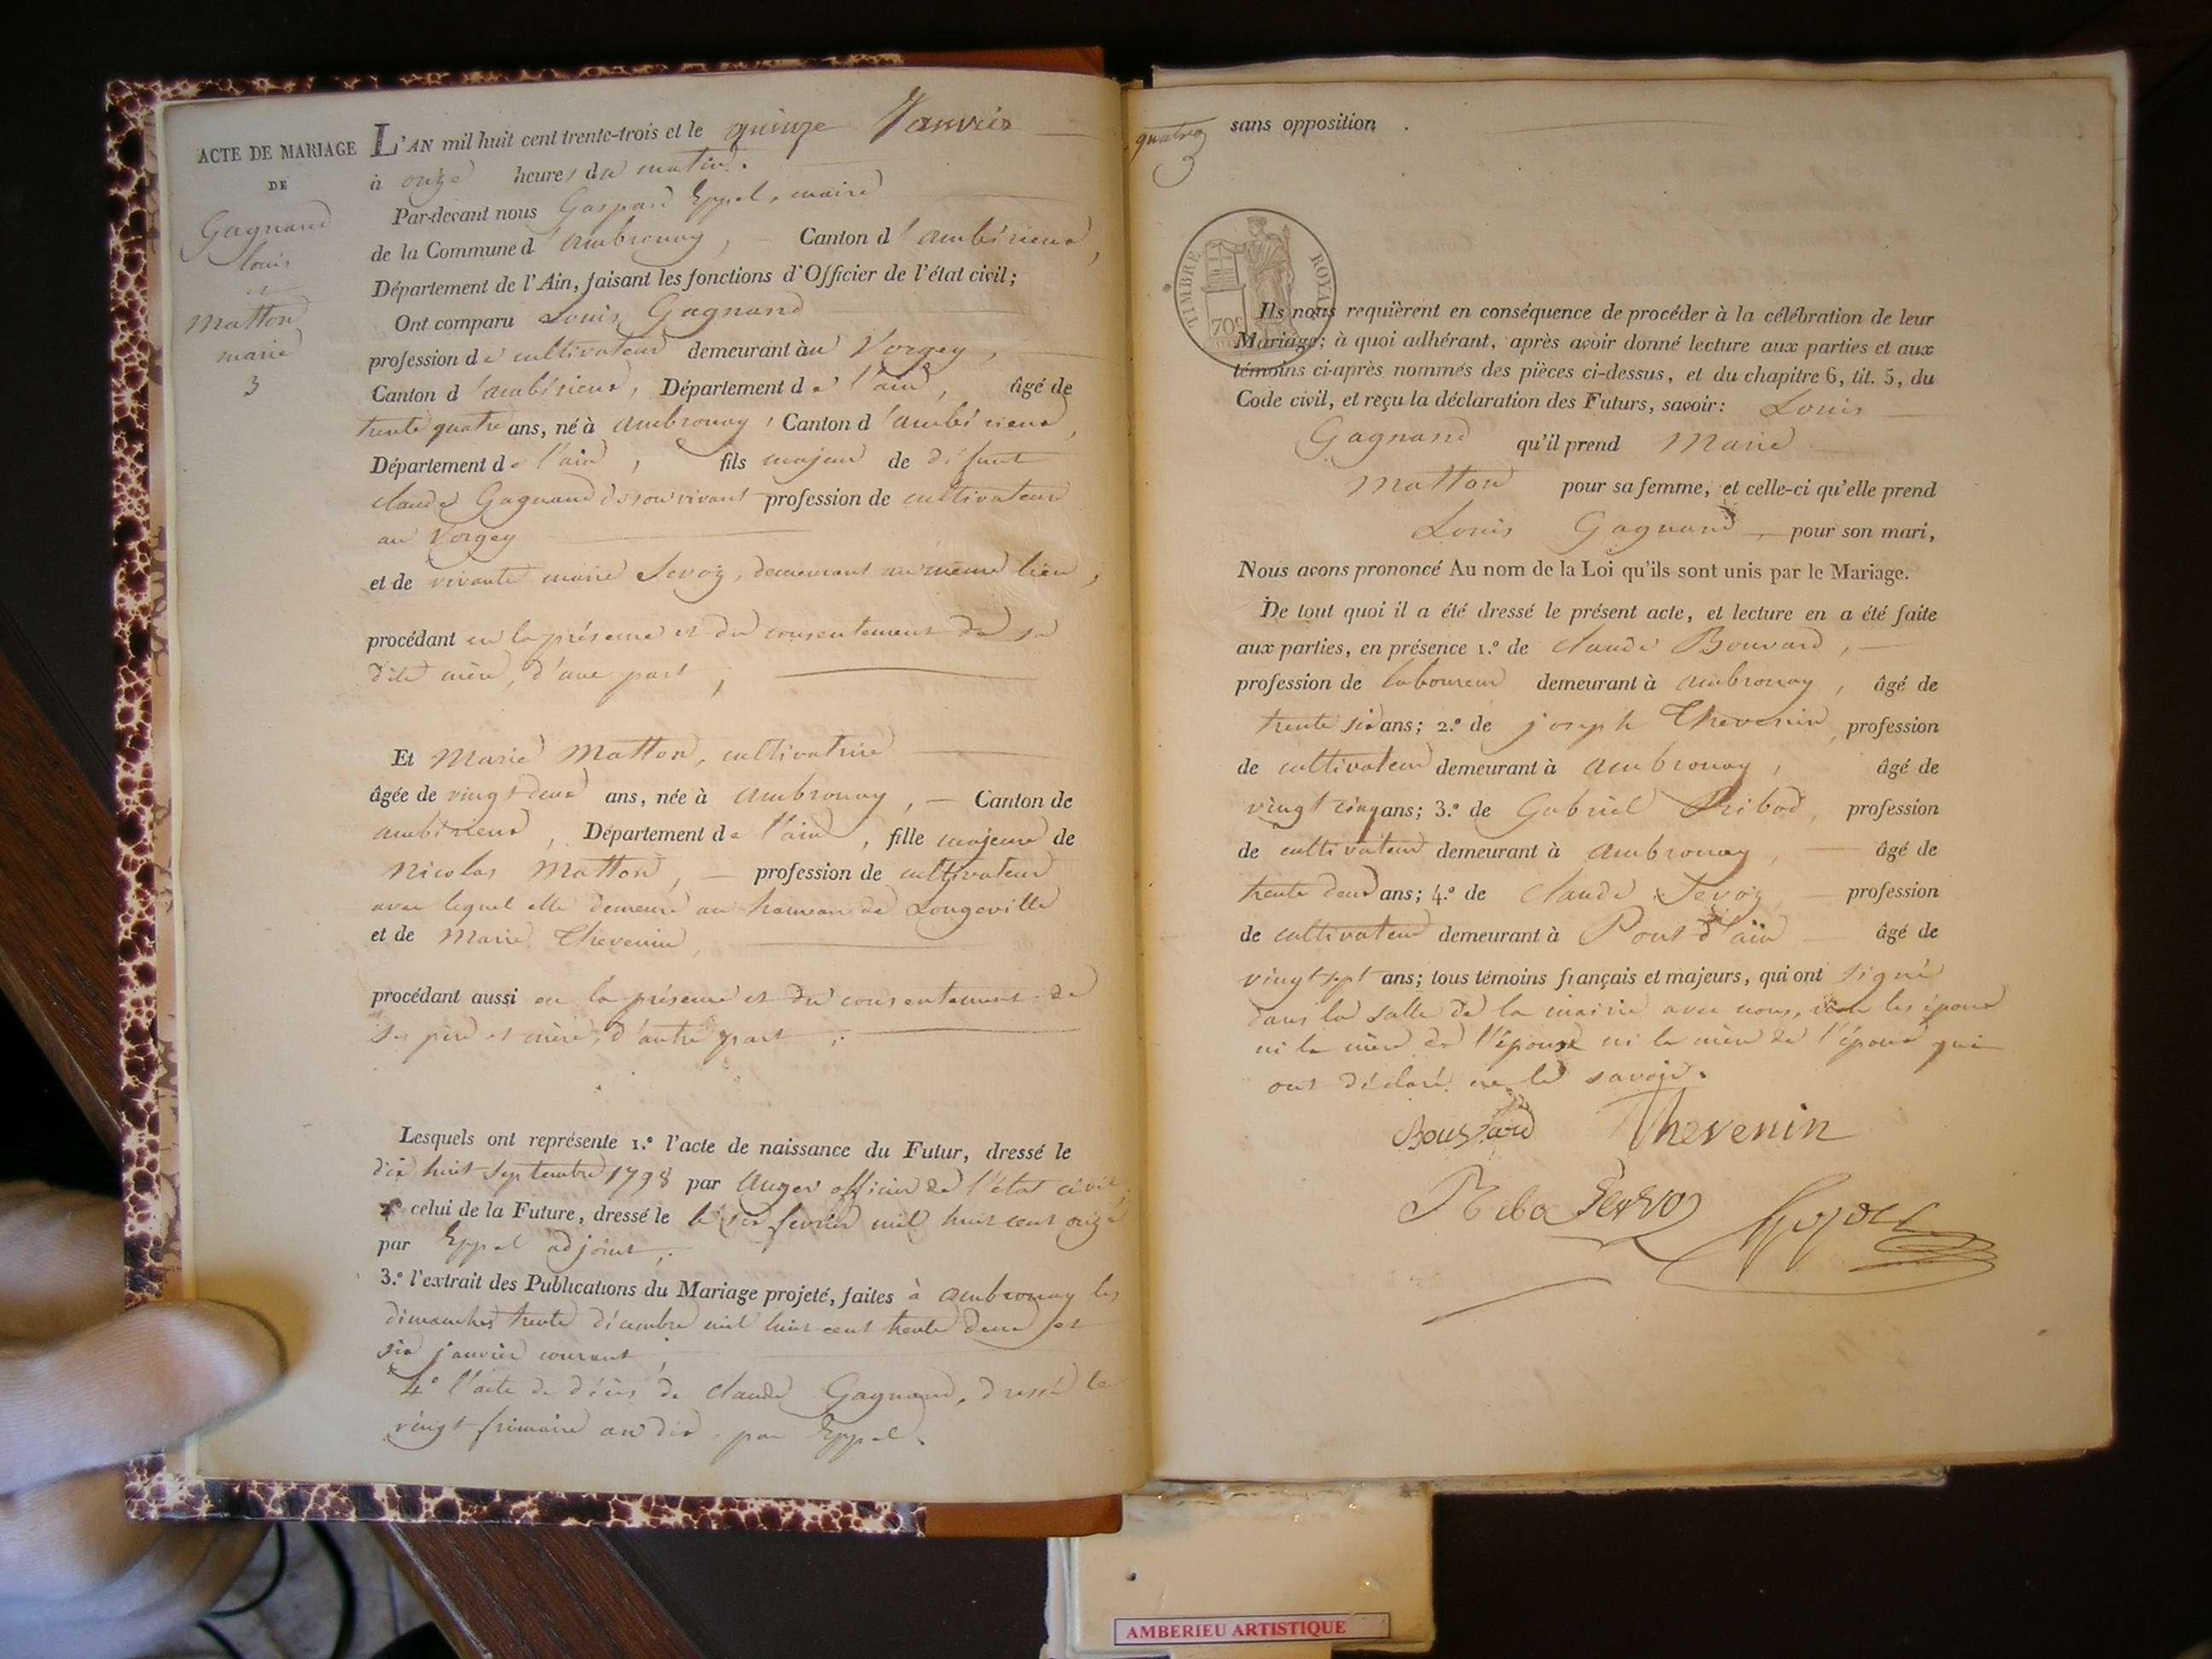 ACTE DE MARIAGE
DE
Gagnand
louis
et
Matton
marie
3
L'AN mil huit cent trente-trois et le quinze Janvier
à onze heures du matin.
Par-devant nous Gaspard Eppel, maire
de la Commune d'ambronay, Canton d'ambérieux,
Département de l'Ain, faisant les fonctions d'Officier de l'état civil;
Ont comparu Louis Gagnand
profession de cultivateur demeurant au Vorgey,
Canton d'ambérieux, Département de l'ain, âgé de
trente quatre ans, né à ambronay, Canton d'ambérieux,
Département de l'ain, fils majeur de défunt
claude Gagnand de son vivant profession de cultivateur
au Vorgey
et de vivante marie Sevoz, demeurant au même lieu,
procédant en la présence et du consentement de sa
dite mère, d'une part,
Et Marie Matton, cultivatrice
âgée de vingt deux ans, née à ambronay, Canton de
ambérieux, Département de l'ain, fille majeure de
Nicolas Matton, profession de cultivateur
avec lequel elle demeure au hameau de Longeville
et de Marie Thevenin
procédant aussi en la présence et du consentement de
ses père et mère, d'autre part;
Lesquels ont représente 1.º l'acte de naissance du Futur, dressé le
dix huit septembre 1798 par Auger officier de l'état civil;
2º celui de la Future, dressé le le six fevrier mil huit cent onze
par Eppel adjoint;
3.º l'extrait des Publications du Mariage projeté, faites à ambronay les
dimanches trente décembre mil huit cent trente deux et
six janvier courant;
4º l'acte de décès de claude Gagnand, dressé le
vingt frimaire an dix par Eppel.
quatre
sans opposition.
TIMBRE ROYAL
70c
Ils nous requièrent en conséquence de procéder à la célébration de leur
Mariage; à quoi adhérant, après avoir donné lecture aux parties et aux
témoins ci-après nommés des pièces ci-dessus, et du chapitre 6, tit. 5, du
Code civil, et reçu la déclaration des Futurs, savoir: Louis
Gagnand qu'il prend Marie
Matton pour sa femme, et celle-ci qu'elle prend
Louis Gagnand, pour son mari,
Nous avons prononcé Au nom de la Loi qu'ils sont unis par le Mariage.
De tout quoi il a été dressé le présent acte, et lecture en a été faite
aux parties, en présence 1.º de claude Bouvard,
profession de laboureur demeurant à ambronay, âgé de
trente six ans; 2.º de joseph Thevenin, profession
de cultivateur demeurant à ambronay, âgé de
vingt cinq ans; 3.º de Gabriel Ribod, profession
de cultivateur demeurant à ambronay, âgé de
trente deux ans; 4.º de claude Sevoz, profession
de cultivateur demeurant à Pont d'ain âgé de
vingt sept ans; tous témoins français et majeurs, qui ont signé
dans la salle de la mairie avec nous, non les époux
ni la mère de l'épouse ni la mère de l'époux qui
ont déclaré ne le savoir.
Bouvard Thevenin
AMBERIEU ARTISTIQUE